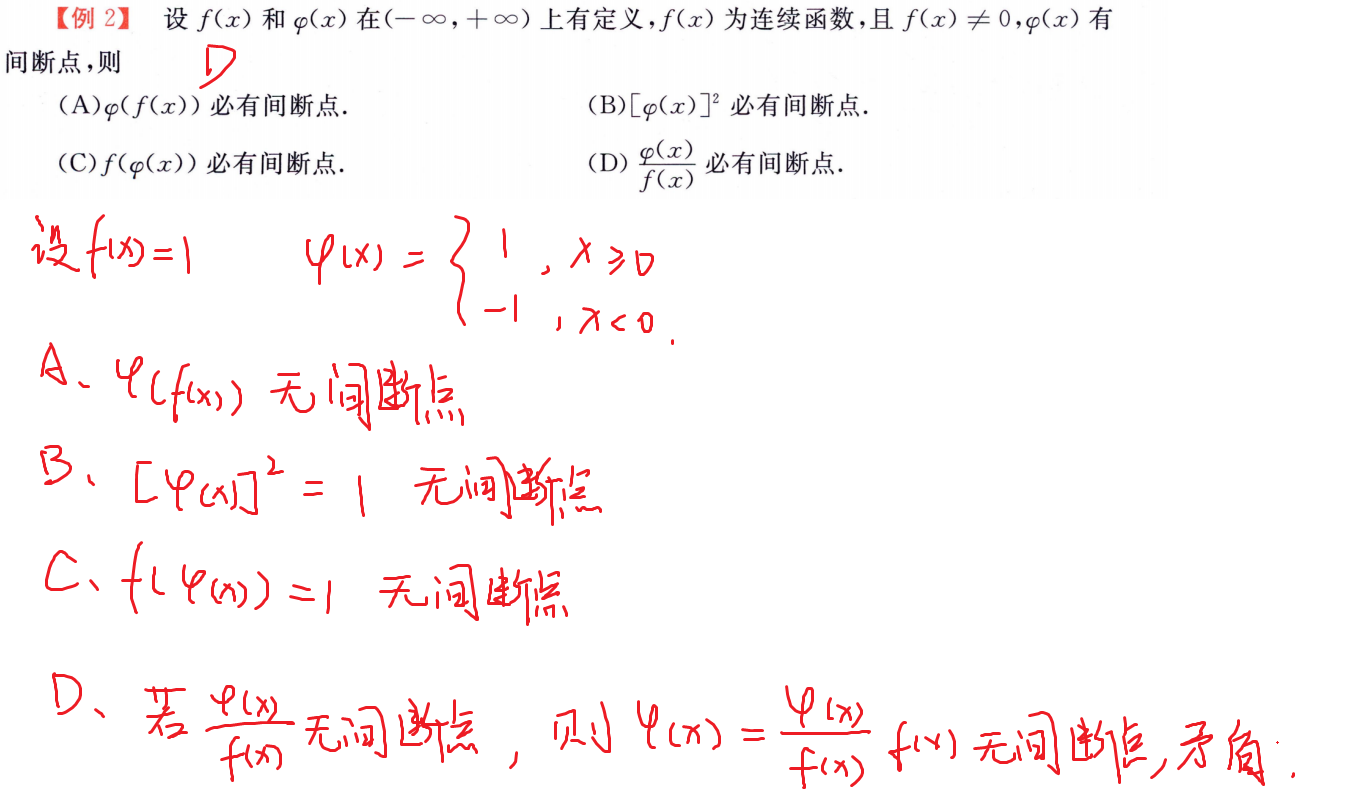 【例 2】 设 f(x) 和 φ(x) 在(－∞,＋∞) 上有定义,f(x) 为连续函数,且 f(x) ≠ 0,φ(x) 有
间断点,则 D
(A)φ(f(x)) 必有间断点. (B)[φ(x)]² 必有间断点.
(C)f(φ(x)) 必有间断点. (D) φ(x)/f(x) 必有间断点.
设 f(x)=1 φ(x) = { 1 , x≥0
-1 , x<0.
A、φ(f(x)) 无间断点
B、[φ(x)]² = 1 无间断点
C、f(φ(x)) =1 无间断点
D、若 φ(x)/f(x) 无间断点, 则 φ(x) = φ(x)/f(x) f(x) 无间断点,矛盾.